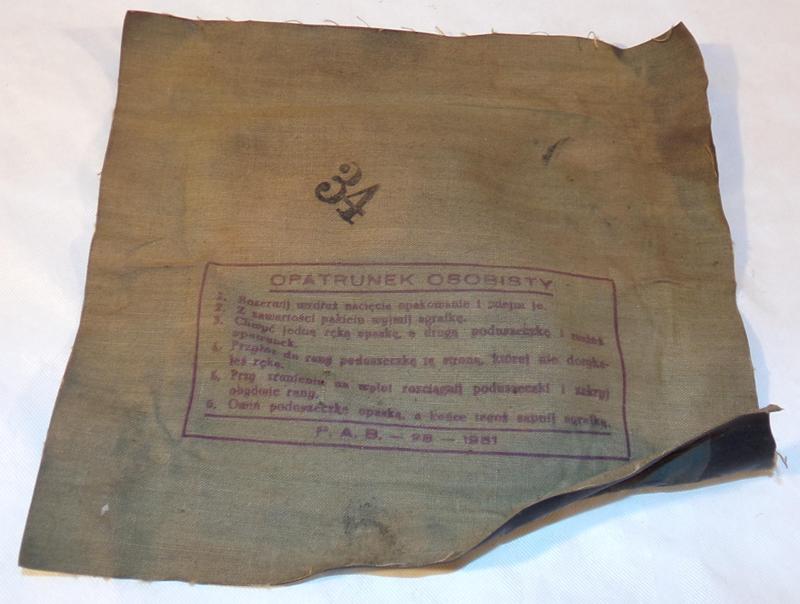 34
OPATRUNEK OSOBISTY
1. Rozerwij wzdłuż nacięcia opakowanie i zdejm je.
2. Z zawartości pakietu wyjmij agrafkę.
3. Chwyć jedną ręką opaskę, a drugą poduszeczkę i
opatrunek.
4. Przyłóż do rany poduszeczkę tą stroną, której nie dotyka-
łeś ręką.
5. Przy zranieniu na wylot rozciągnij poduszeczki i zakryj
obydwie rany.
6. Owiń poduszeczkę opaską, a końce zapnij agrafką.
P. A. B. — 28 — 1951